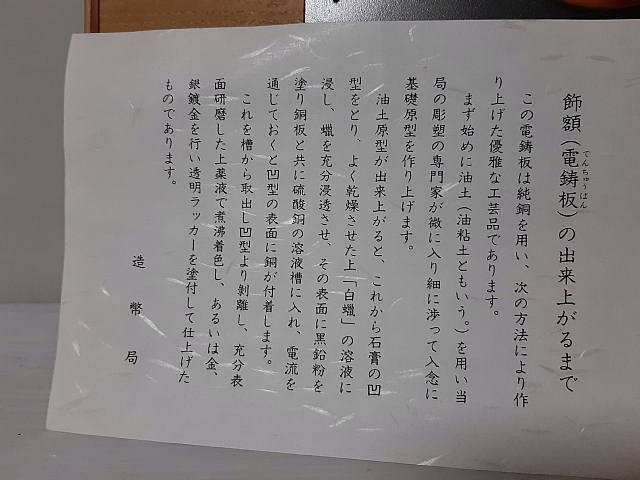 飾額(電鋳板)の出来上がるまで
でんちゅうばん
この電鋳板は純銅を用い、次の方法により作
り上げた優雅な工芸品であります。
まず始めに油土(油粘土ともいう。)を用い当
局の彫塑の専門家が微に入り細に渉って入念に
基礎原型を作り上げます。
油土原型が出来上がると、これから石膏の凹
型をとり、よく乾燥させた上「白蠟」の溶液に
浸し、蠟を充分浸透させ、その表面に黒鉛粉を
塗り銅板と共に硫酸銅の溶液槽に入れ、電流を
通じておくと凹型の表面に銅が付着します。
これを槽から取出し凹型より剝離し、充分表
面研磨した上薬液で煮沸着色し、あるいは金、
銀鍍金を行い透明ラッカーを塗付して仕上げた
ものであります。
造幣局